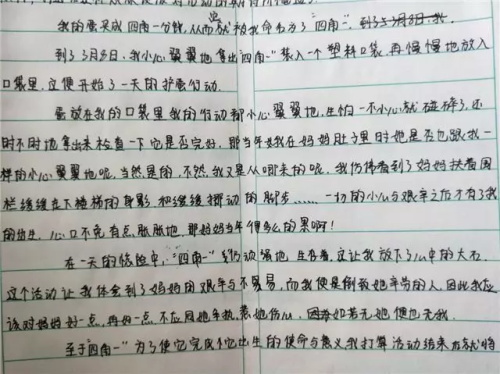 我的蛋买成四角一分钱，从而就给我命名为了“四角一”，
到了3月8日，我小心翼翼地拿出“四角一”装入一个塑料口袋，再慢慢地放入
口袋里，这便开始了一天的护蛋行动。
蛋放在我的口袋里，我的行动都小心翼翼地，生怕一不小心就碰碎了，还
时不时地拿出来检查一下它是否完好，那当年我在妈妈肚子里时她是否也跟我一
样的小心翼翼地呢，当然是的，不然，我又是从哪来的呢，我仿佛看到了妈妈扶着围
栏缓缓在下楼梯的身影和缓缓挪动的脚步……一切的小心与艰辛之后才有了我
的诞生，心口不免有点胀胀地，那妈妈当年得多么的累啊！
在一天的惊险中，“四角一”地生存着，这让我放下了心中的大石
这个活动让我体会到了妈妈的艰辛与不易，而我便是倒致她辛劳的人，因此我应
该对妈妈好一点，再好一点，不应用她争执，惹她伤心，因为如若无她便也无我。
至于“四角一”为了使它完成它出生的使命与意义，我打算活动结束后就将